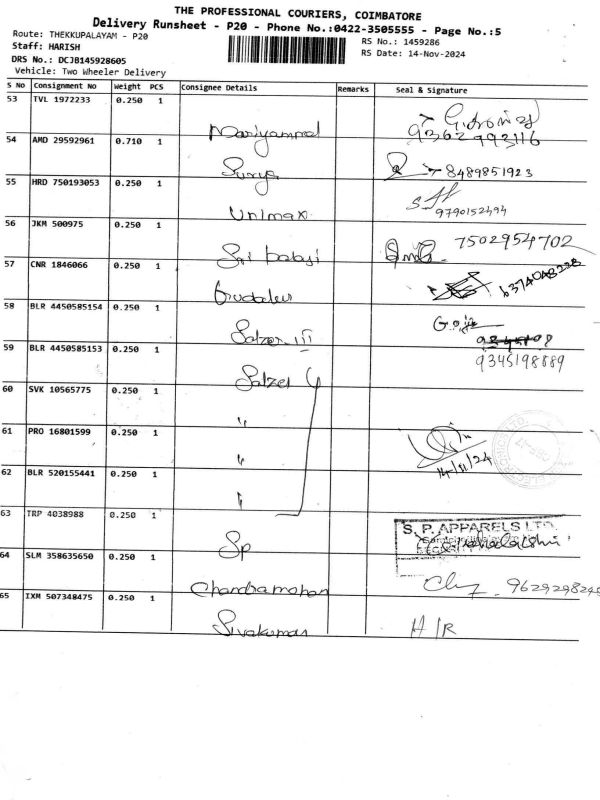 THE PROFESSIONAL COURIERS, COIMBATORE
Delivery Runsheet - P20 - Phone No.:0422-3505555 - Page No.:5
Route: THEKKUPALAYAM - P20
RS No.: 1459286
Staff: HARISH
RS Date: 14-Nov-2024
DRS No.: DCJB145928605
Vehicle: Two Wheeler Delivery
S No Consignment No Weight PCS Consignee Details Remarks Seal & Signature
53 TVL 1972233 0.250 1 Mariyammal 9362993116
54 AMD 29592961 0.710 1 Surya 8489851923
55 HRD 750193053 0.250 1 Unimax 9790152494
56 JKM 500975 0.250 1 Sri balaji 7502954702
57 CNR 1846066 0.250 1 Gudalur
58 BLR 4450585154 0.250 1 Salzer III
59 BLR 4450585153 0.250 1 Salzer 9345198889
60 SVK 10565775 0.250 1 "
61 PRO 16801599 0.250 1 " 14/11/24
62 BLR 520155441 0.250 1 "
63 TRP 4038988 0.250 1 Sp S. P. APPARELS LTD.
64 SLM 358635650 0.250 1 Chandramohan
65 IXM 507348475 0.250 1 Sivakumar H/R